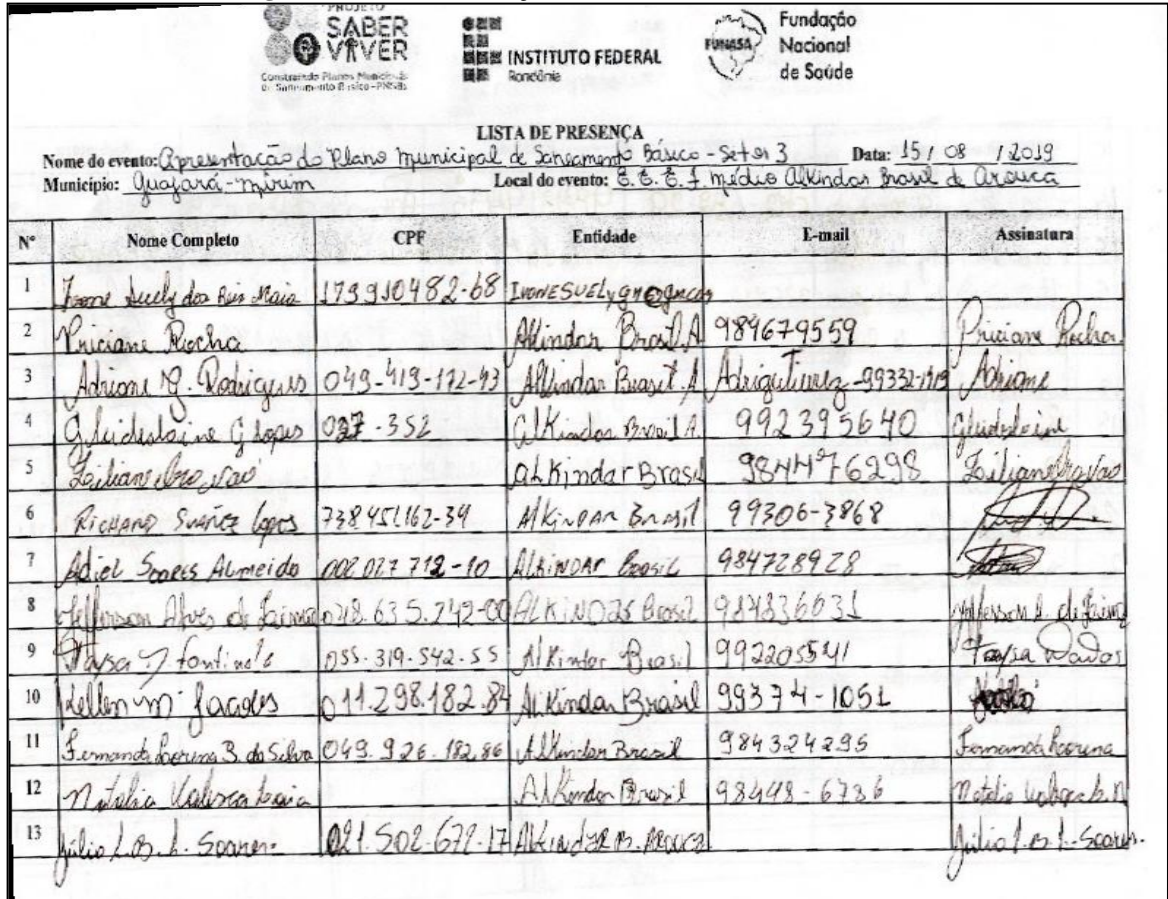 PROJETO
SABER
VIVER
Construindo Planos Municipais
de Saneamento Básico - PMSBs
INSTITUTO FEDERAL
Rondônia
FUNASA
Fundação
Nacional
de Saúde
LISTA DE PRESENÇA
Nome do evento: Apresentação do Plano Municipal de Saneamento Básico - Setor 3 Data: 15 / 08 / 2019
Município: Guajará-mirim Local do evento: E.E.E.F médio Alkindar Brasil de Arouca
Nº Nome Completo CPF Entidade E-mail Assinatura
1 dos Reis Maia 179910482-68
2 Priciane Rocha Alkindar Brasil.A 989679559 Priciane Rocha
3 Adriane G. Rodrigues 049-419-172-93 Alkindar Brasil.A Adrigutierrez -99332-1919 Adriane
4 Gleideslaine G Lopes 037-352 Alkindar Brasil A. 992395640
5 alkindar Brasil 984476298
6 Richard Suárez Lopes 738451162-34 Alkindar Brasil 99306-3868
7 Adiel Soares Almeida 002027712-10 Alkindar Brasil 984728928
8 Jefferson Alves de 018.635.242-00 ALKINDAR Brasil 984836031
9 Fontinele 055.319.542.55 Alkindar Brasil 992205541
10 Kellen m 011.298.182.84 Alkindar Brasil 99374-1051
11 Fernanda Lorena B. da Silva 049.926.182.86 Alkindar Brasil 984324295 Fernanda Lorena
12 Natalia Valesca Alkindar Brasil 98448-6736
13 Júlio L.B.L. Soares 021.502.672-17 Alkindar B. Arouca Júlio L.B.L. Soares